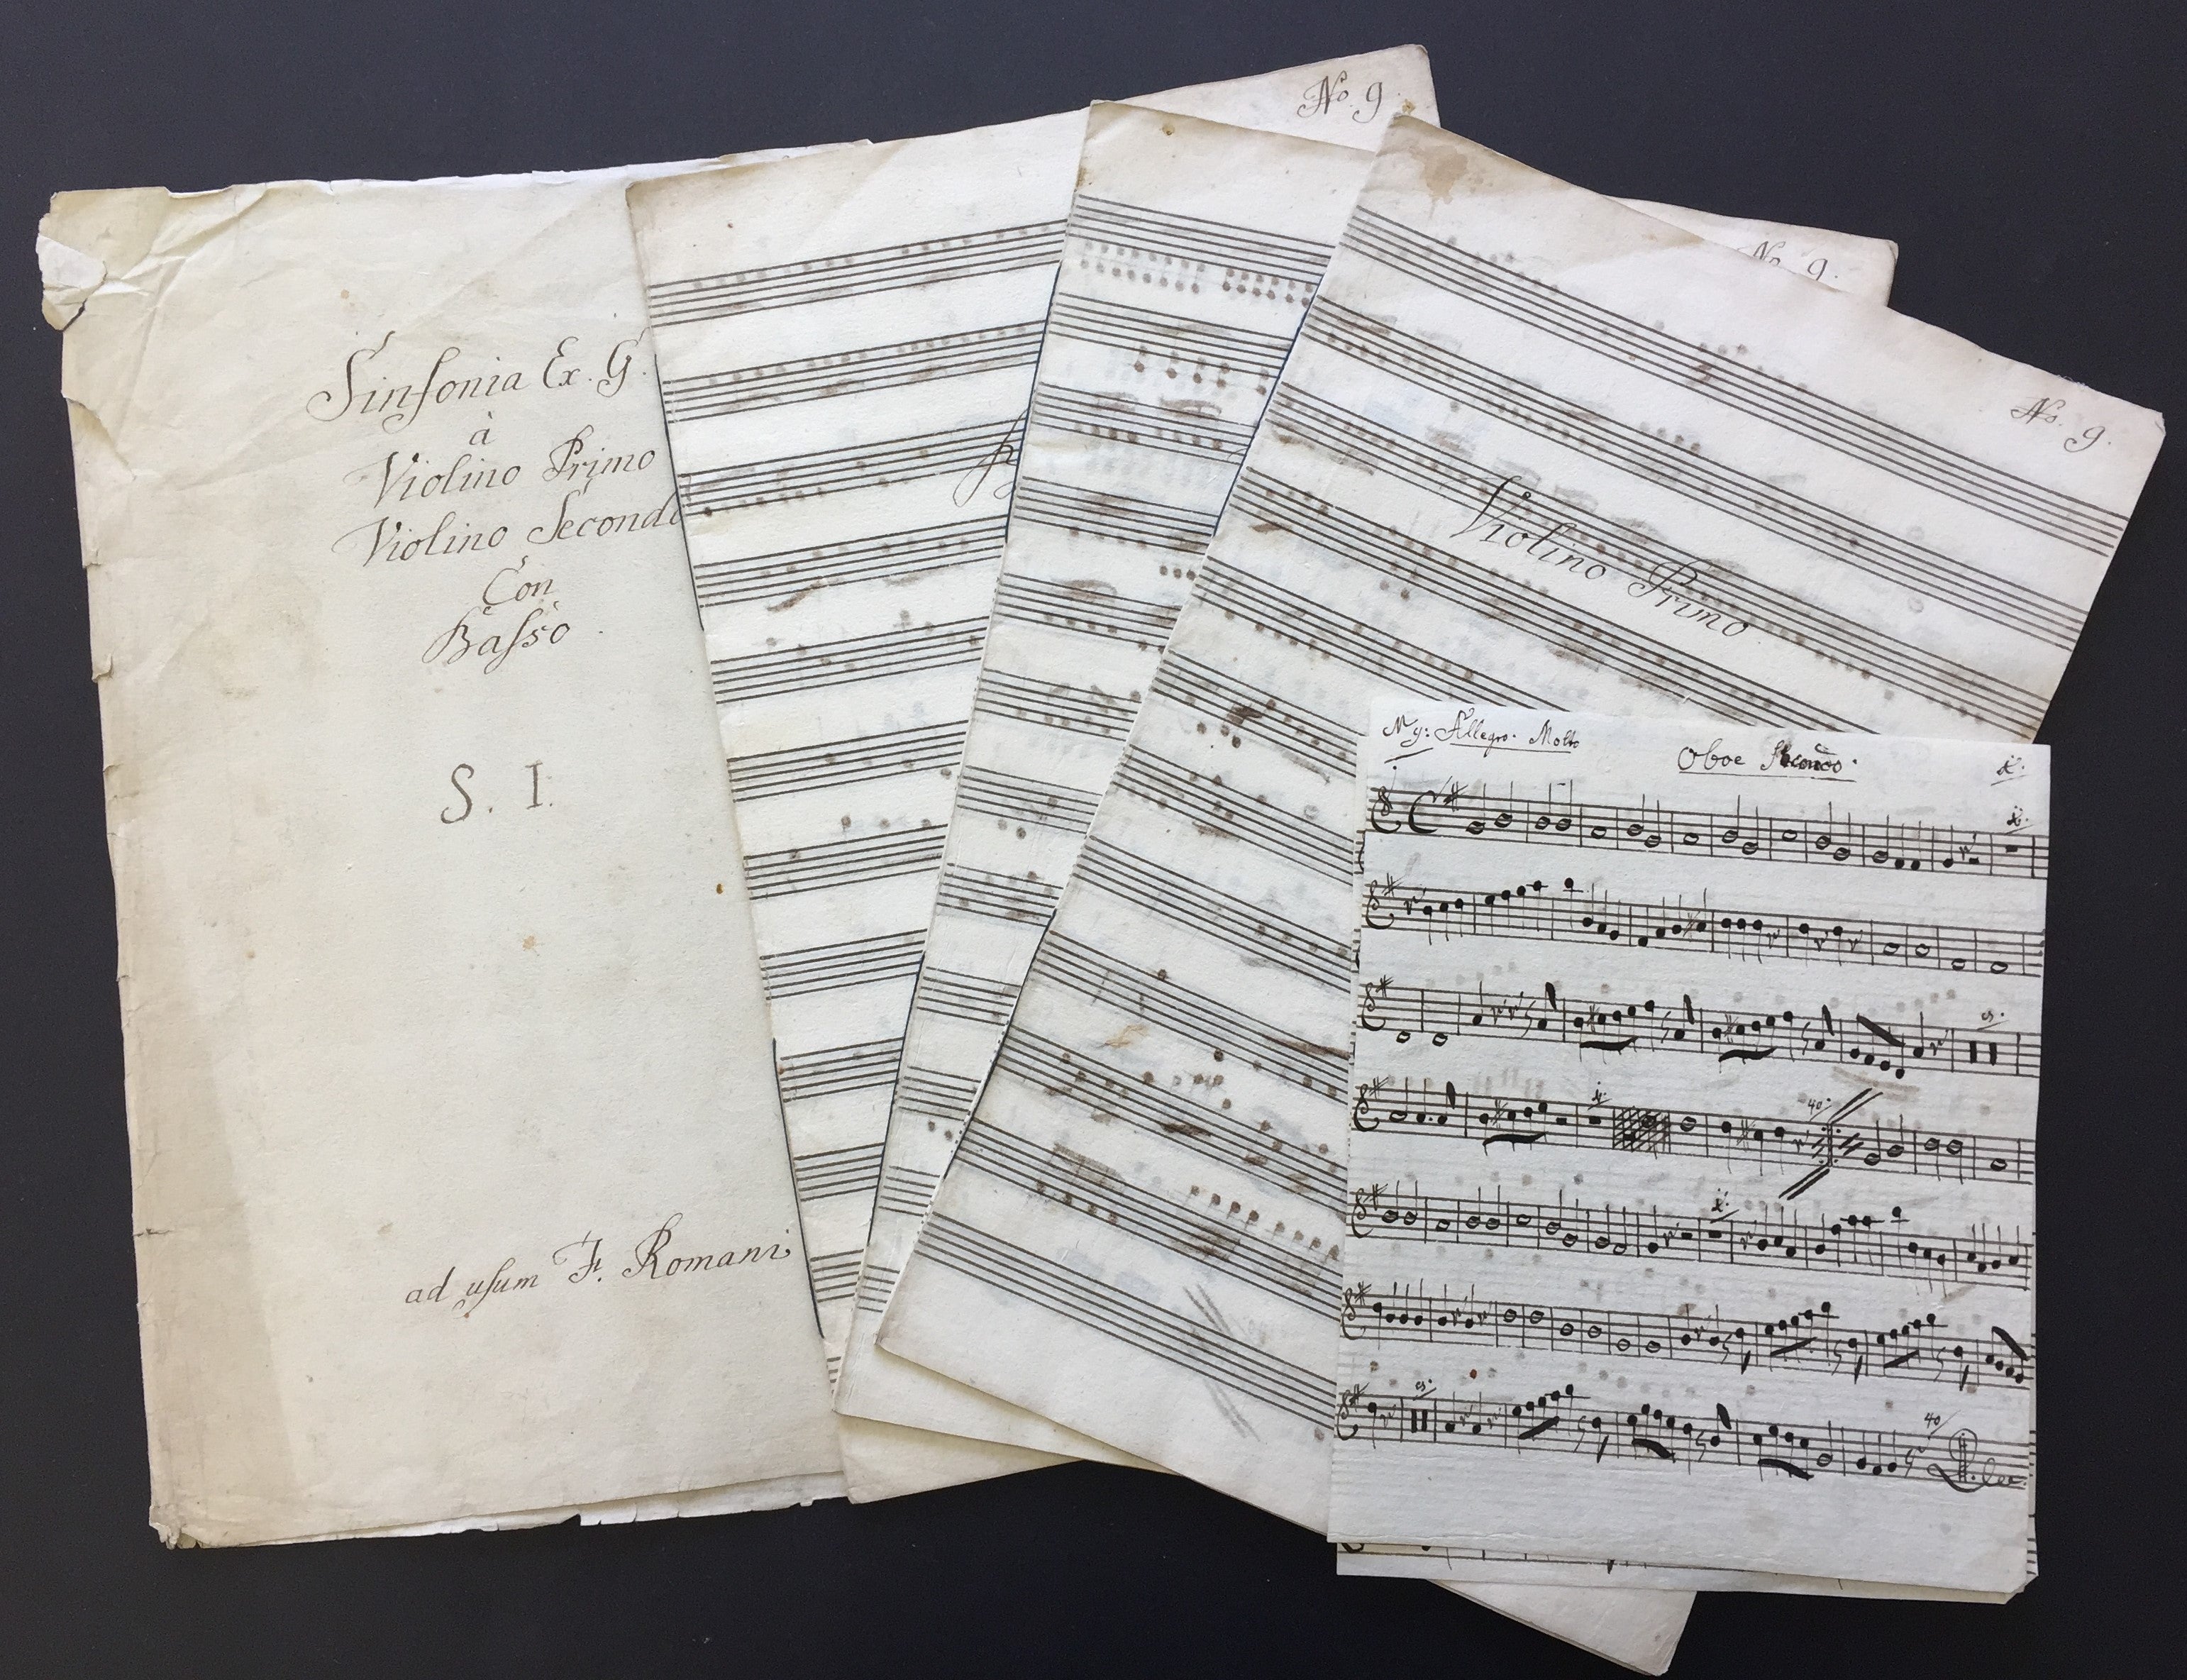 Sinfonia Ex. G.
à
Violino Primo
Violino Secondo
Con
Basso
S. I.
ad usum F. Romani
No. 9.
No. 9.
No. 9.
Violino Primo
Allegro. Molto
Oboe Secondo.
40
40